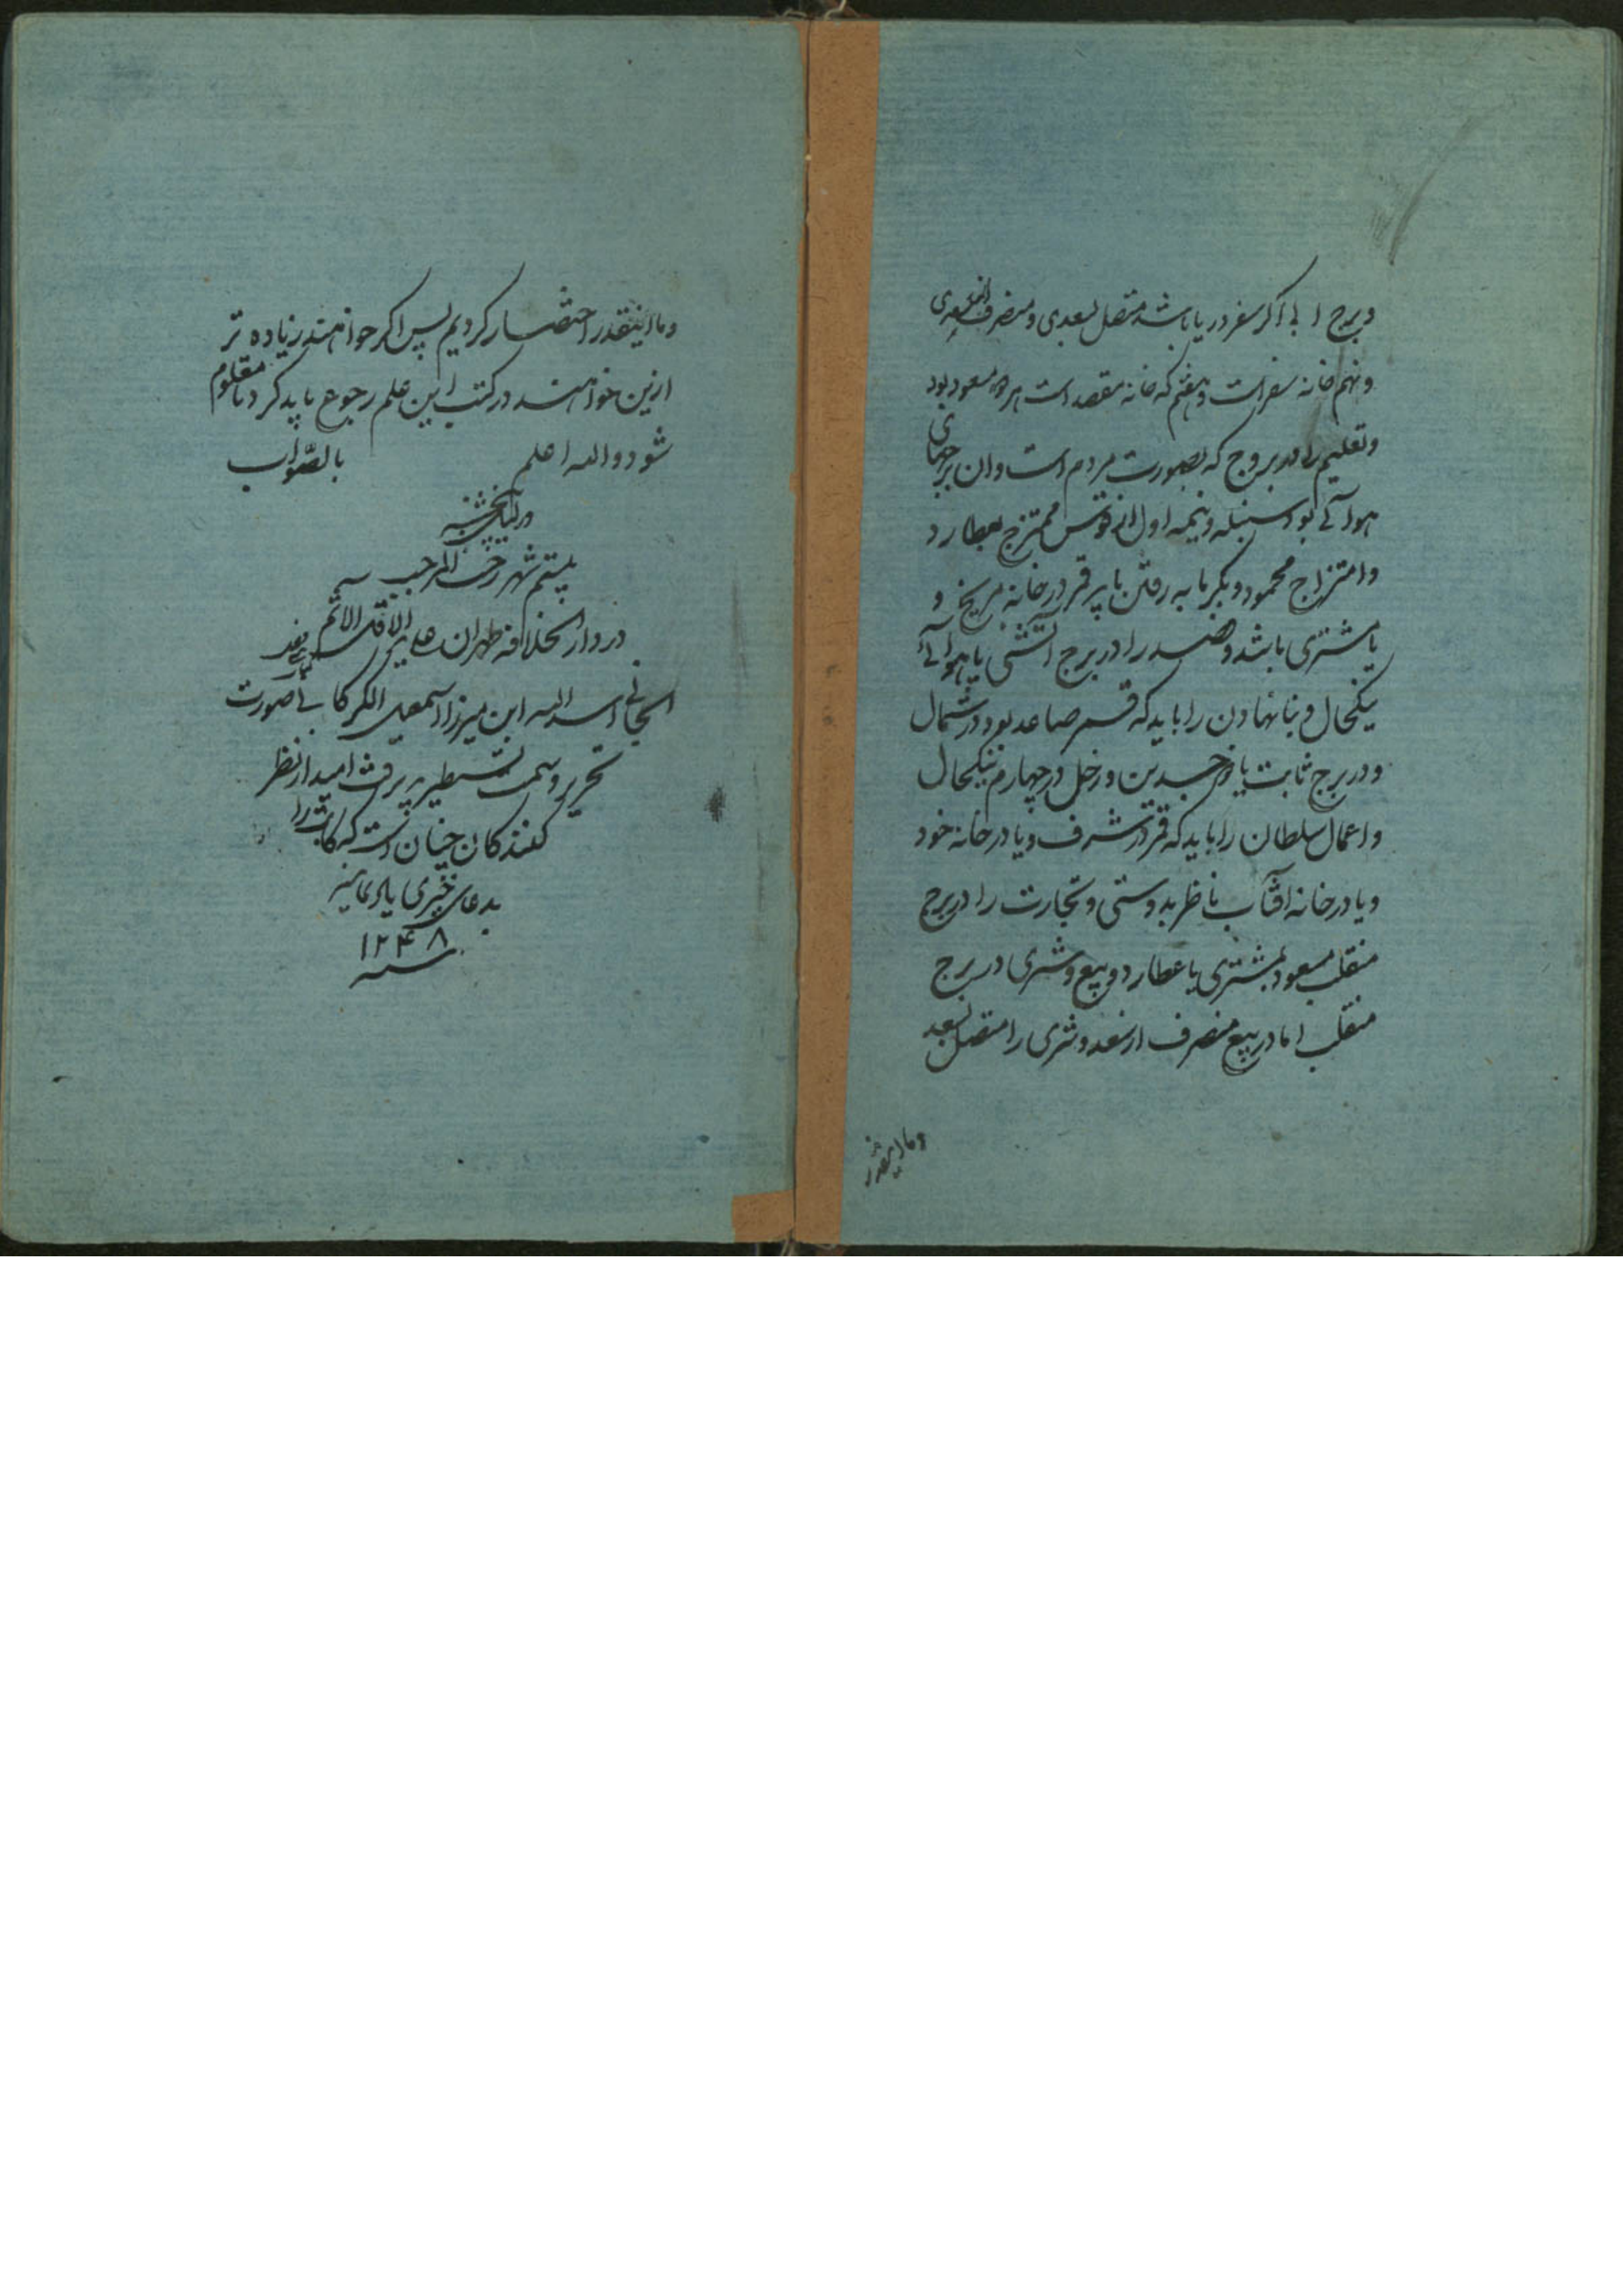 و برج ابی اگر سفر دریا باشد متصل بسعدی و منصرف از سعدی
و نهم خانه سفر است و هفتم که خانه مقصد است هر دو مسعود بود
و تعلیم را در بروج که بصورت مردم است و ان برجهای
هوائی بود و سنبله و نیمه اول از قوس ممتزج بعطارد
و امتزاج محمود و بگرمابه رفتن باید قمر در خانه مریخ و
یا مشتری باشد و فصد را در برج اتشی یا هوائی
نیکحال و بنا نهادن را باید که قمر صاعد بود در شمال
و در برج ثابت یا ذو جسدین و زحل در چهارم نیکحال
و اعمال سلطان را باید که قمر در شرف و یا در خانه خود
و یا در خانه افتاب ناظر بدوستی و تجارت را در برج
منقلب مسعود بمشتری یا عطارد و بیع و شری در برج
منقلب اما در بیع منصرف از سعد و شری را متصل بسعد
و ما اینقدر
و ما اینقدر اختصار کردیم پس اگر خواهند زیاده تر
ازین خواهند در کتب این علم رجوع باید کرد تا معلوم
شود و الله اعلم بالصواب
در لیله پنجشنبه
بیستم شهر رجب المرجب
در دار الخلافه طهران علی ید الاقل الاثم
الجانی اسد الله ابن میرزا اسمعیل الکرکانی صورت
تحریر و سمت تسطیر پذیرفت امید از نظر
کنندکان چنان است که کاتب را
بدعای خیری یاد نمایند
سنه ۱۲۴۸